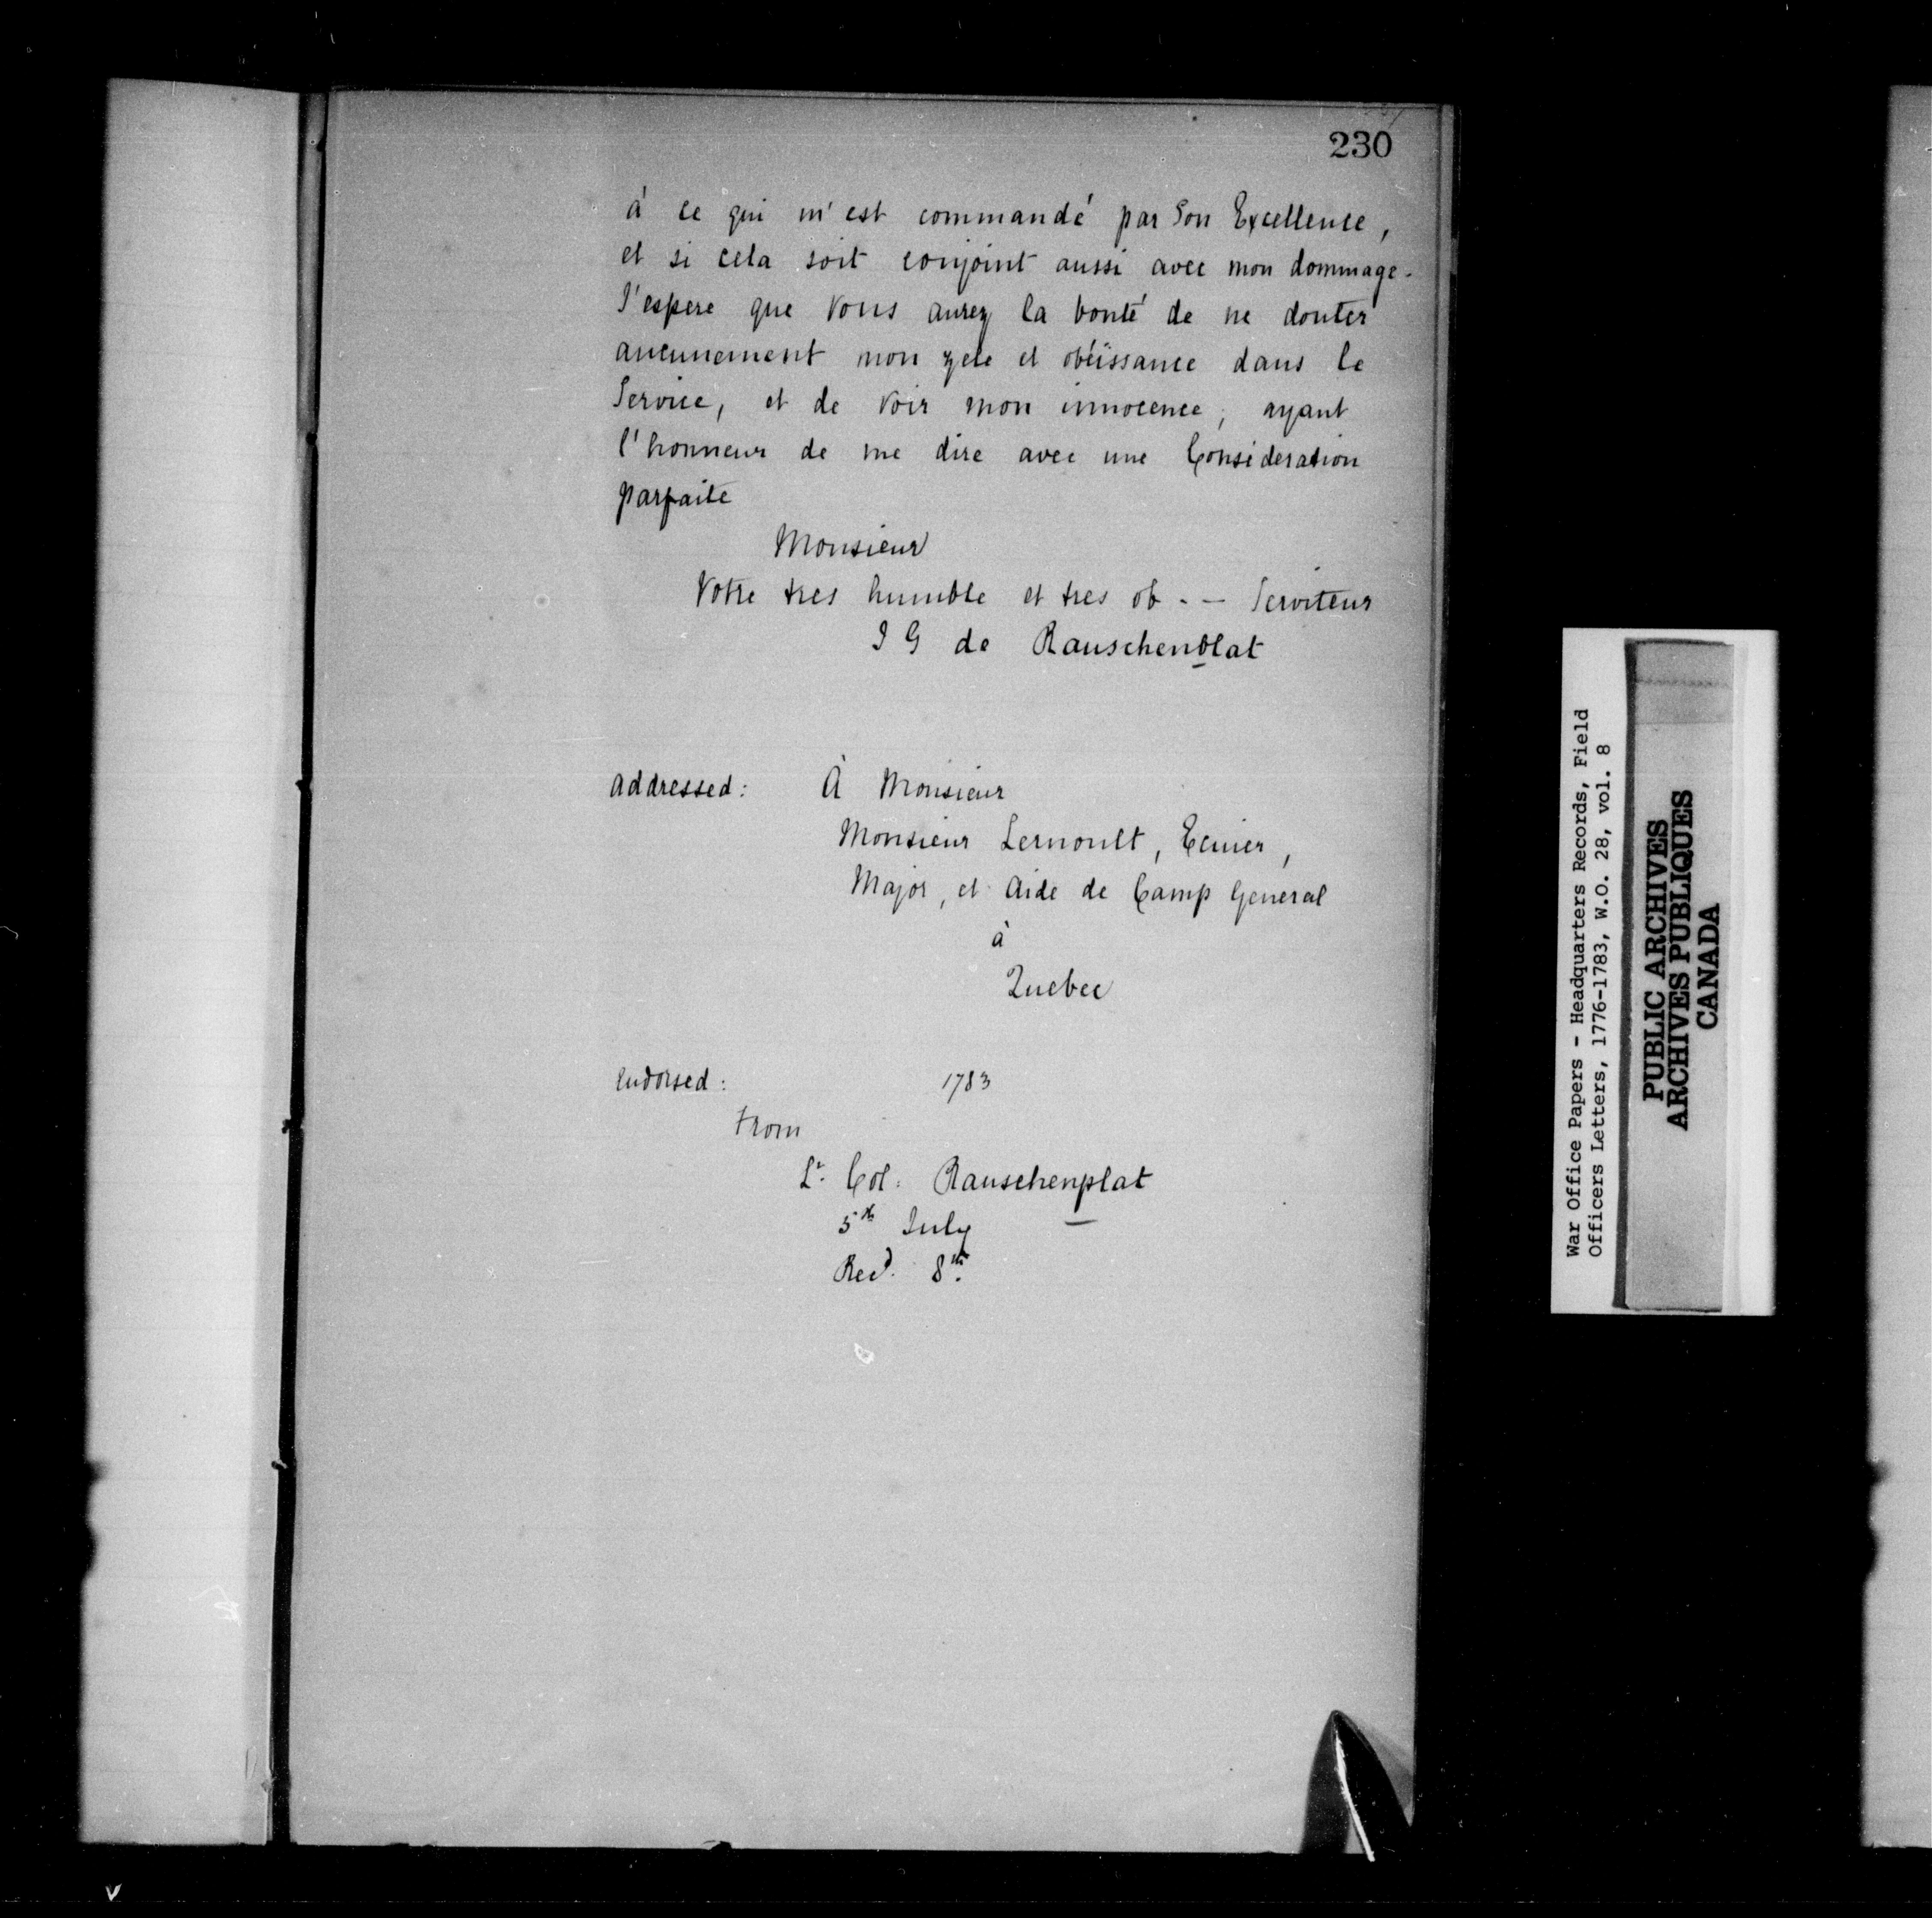 230
à ce qui m'est commandé par Son Excellence,
et si cela soit conjoint aussi avec mon dommage.
J'espere que Vous aurez la bonté de ne douter
aucunement mon zele et obéissance dans le
Service, et de Voir mon innocence, ayant
l'honneur de me dire avec une Consideration
parfaite
Monsieur
Votre tres humble et tres ob - - Serviteur
I G de Rauschenblat
addressed: À Monsieur
Monsieur Lernoult, Ecuier,
Major, et Aide de Camp General
à
Quebec
Endorsed: 1783
From
Lt. Col: Rauschenplat
5th July
Recd. 8th.
War Office Papers - Headquarters Records, Field
Officers Letters, 1776-1783, W.O. 28, vol. 8
PUBLIC ARCHIVES
ARCHIVES PUBLIQUES
CANADA